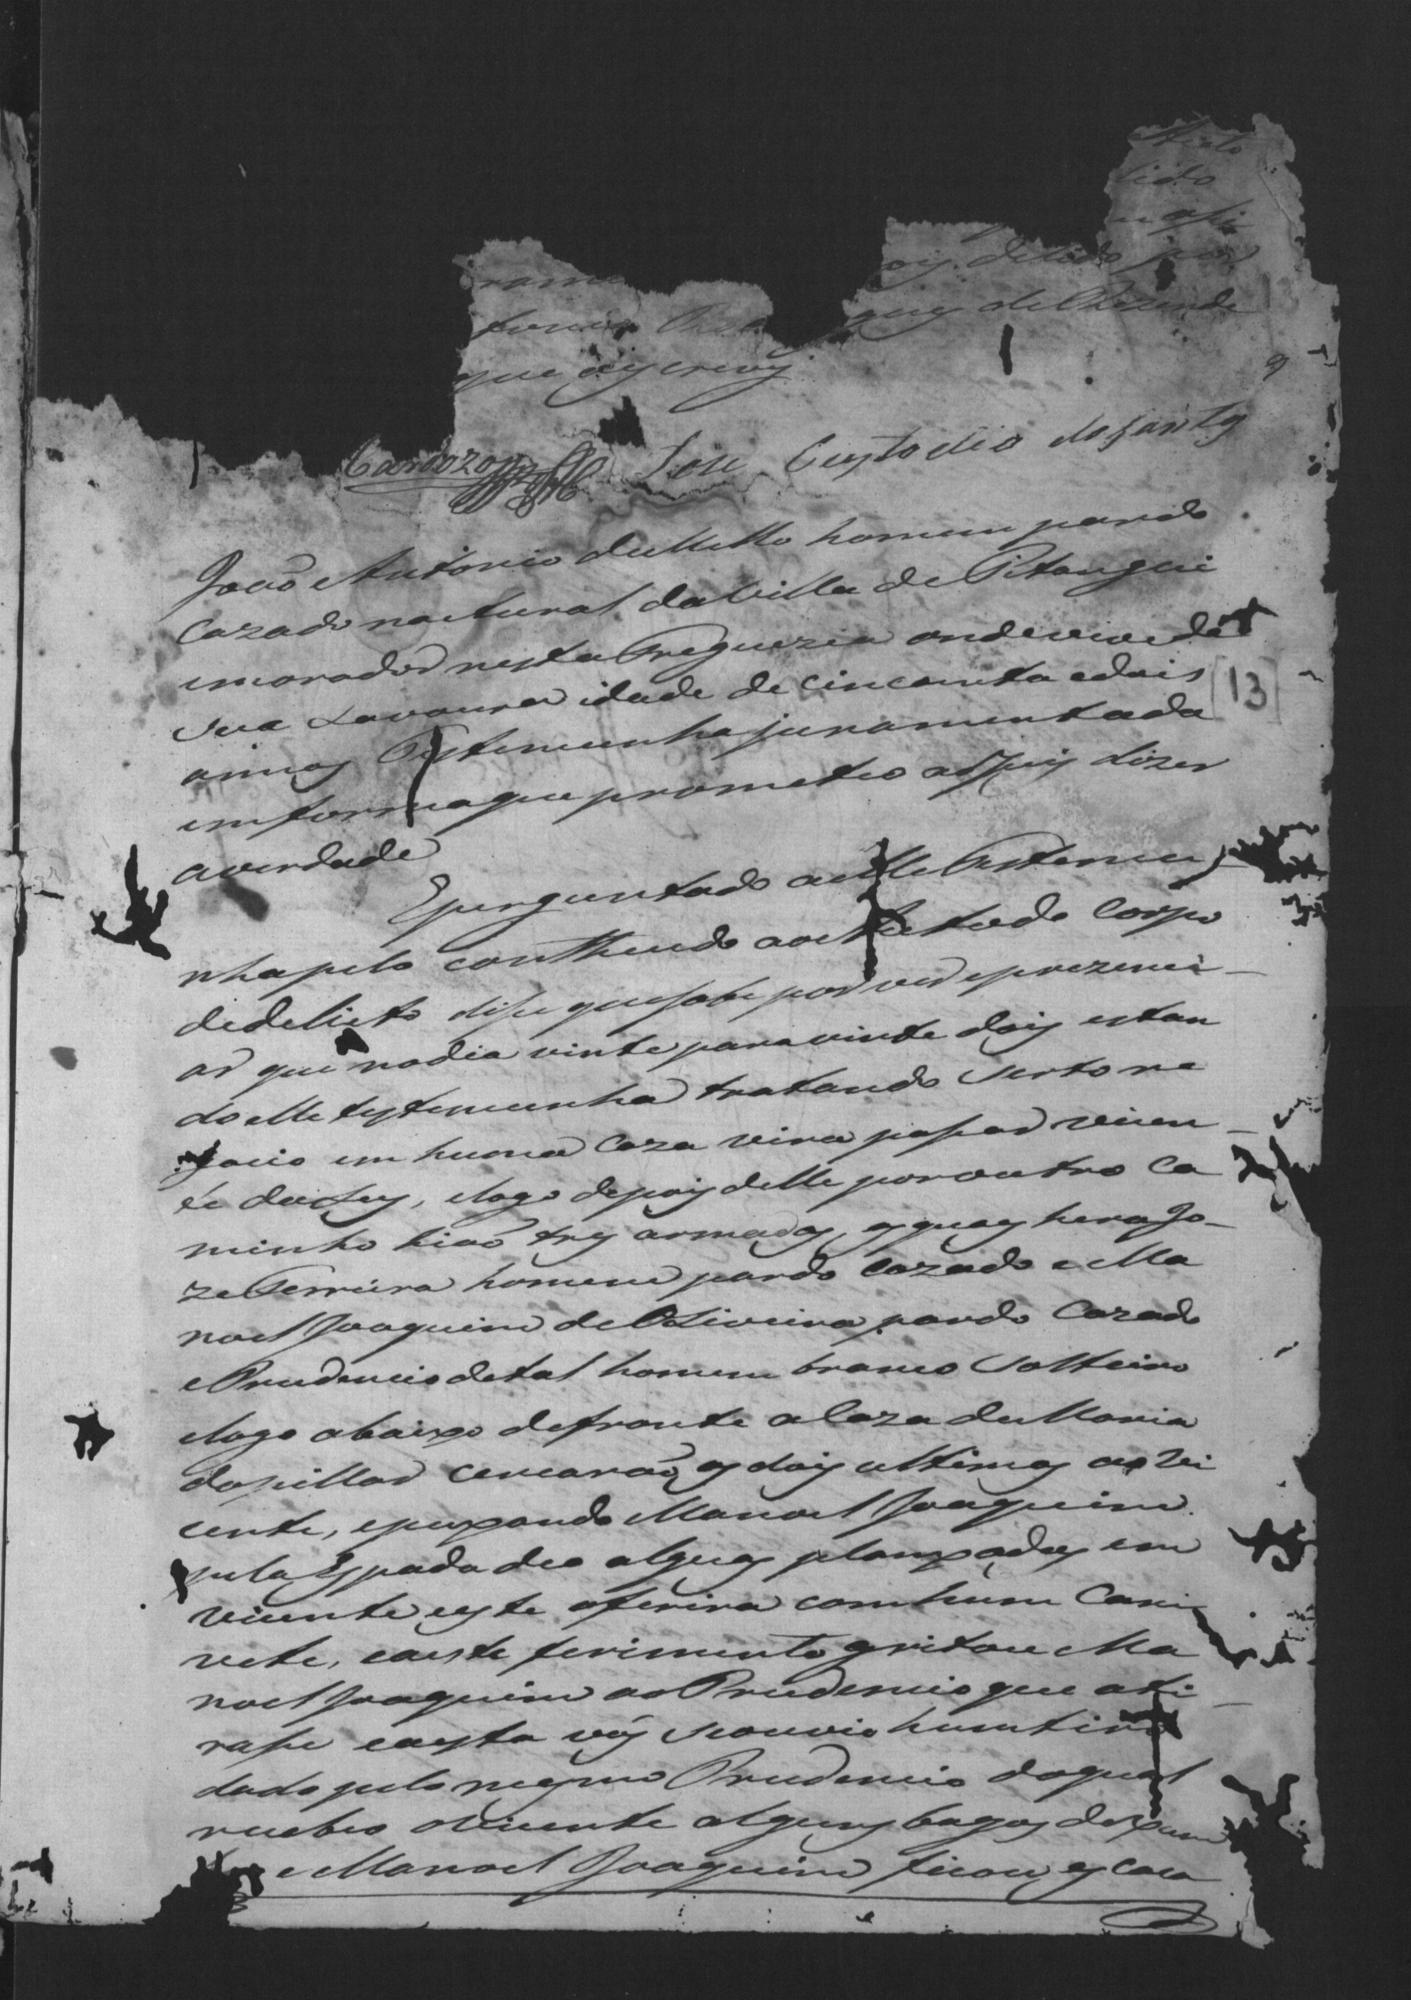 lido
ois de lido por
que de Rezende
que escrevy
Cardozo Joze Custodio dos Santos
João Antonio de Mello homem pardo
Cazado natural da Villa de Pitangui
e morador nesta Freguezia onde vive de
sua Lavoura idade de cincoenta e dois
annos Testemunha juramentada
em forma que prometeo a ſsim dizer
averdade
E perguntado a elle Testemu
nha pelo contheudo ao Auto do Corpo
de delicto diſse que ſabe por ver e prezenci
ar que no dia vinte para vinte dois estan
do elle testemunha tratando serto ne
gocio em huma caza vira paſsar Vicen
te, e logo depois delle por outro ca
minho hião tres armados, os quaes hera Jo
ze Ferreira homem pardo cazado e Ma
noel Joaquim de Oliveira pardo Cazado
e Prudencio de tal homem branco Solteiro
e logo abaixo defronte a Caza de Maria
do pillar cercarão os dois ultimos ao Vi
cente, e puxando Manoel Joaquim
pela Espada deo alguas planxadas em
Vicente e este o ferira com hum Cani
vete, e a este ferimento gritou Ma
noel Joaquim ao Prudencio que ati
raſse e a esta vós se ouvio hum tiro
dado pelo mesmo Prudencio do qual
recebeo Vicente alguns bagos de xum
e Manoel Joaquim ficou es cala
[13]